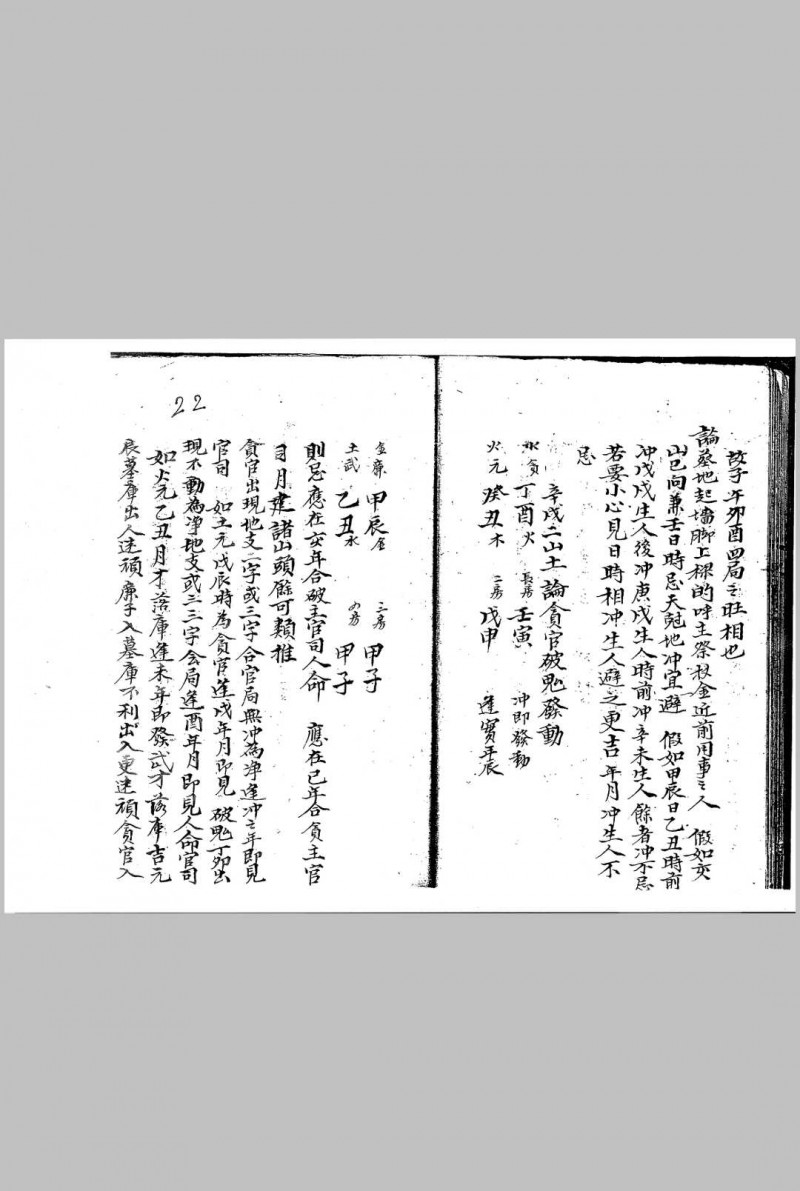 故子午卯酉四局之旺相也
論墓地起墻脚上樑的呼主祭扳金近前用事之人　假如亥
山巳向兼壬日時忌天尅地冲宜避　假如甲辰日乙丑時前
冲戊戌生人後冲庚戌生人時前冲辛未生人餘者冲不忌
若要小心見日時相冲生人避之更吉年月冲生人不
忌
辛戌二山土論貪官破鬼發動
水貪丁酉火　長房壬寅　冲即發動
火元癸丑木　二房戊申　逢寅年辰
金廉甲辰金　三房甲子
土武乙丑水　四房甲子
則忌應在亥年合破主官司人命　應在巳年合貪主官
司月建諸山頭餘可類推
貪官出現地支二字或三字合官局無冲為净逢冲之年即見
官司　如土元戊辰時為貪官逢戌年月即見　破鬼丁卯出
現不動為净地支或二三字会局逢酉年月即見人命官司
如火元乙丑月才落庫逢未年即發武才落庫吉元
辰墓庫出人迷頑廉子入墓庫不利出入更迷頑貪官入
22